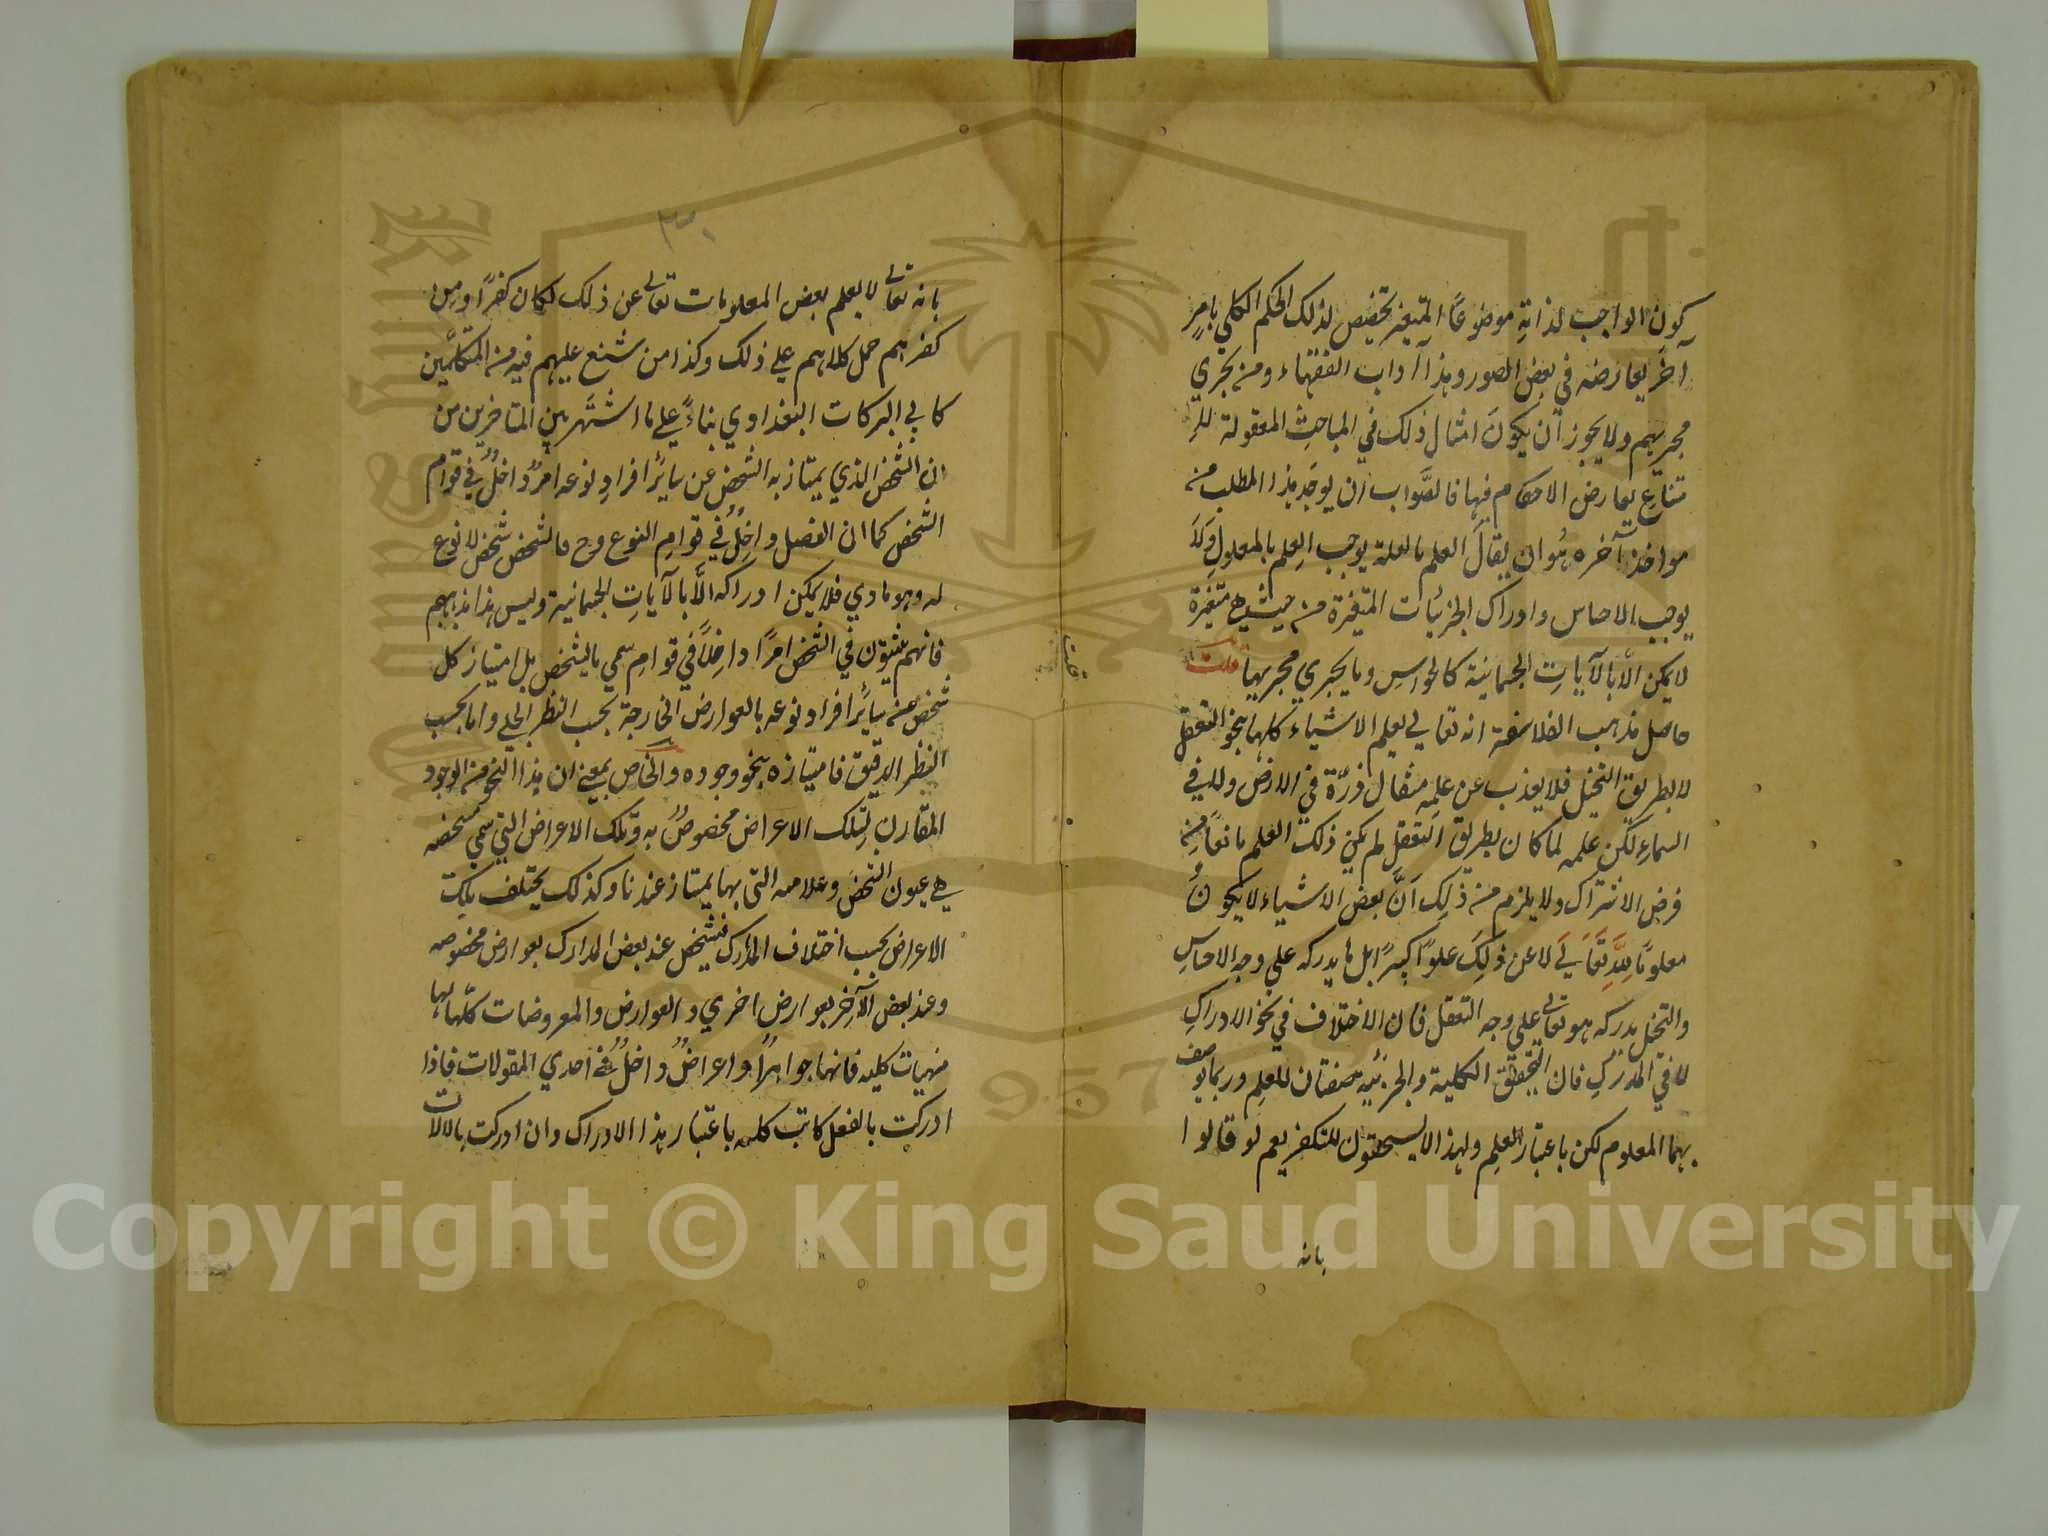 كون الواجب لذاته موضوعًا لمتغير تخصيص لذلك الحكم الكلي بامرٍ
آخَر يعارضه في بعض الصور وهذا آداب الفقهاء ومن يجري
مجريهم ولا يجوز أن يكونَ امثال ذلك في المباحثِ المعقولة
تعارض الاحكام فيها فالصَّواب ان يوخذ هذا المطلب من
ماخذ آخره هُو ان يقالَ العلم بالعلة يوجب العِلم بالمعلولِ ولا
يوجب الاحساس وادراك الجزئيات المتغيرة من حيث هي متغيرة
لا يمكن الّا بالآياتِ الجسمانية كالحواسِ وما يجري مجريها قلت
حاصل مذهب الفلاسفة انه تعالي يعلم الاشياء كلها بنحو التعقل
لا بطريق التخيل فلا يعذب عن علمِه مثقال ذرّة في الارضِ ولا في
السماءِ لكن علمه لما كان بطريق التعقل لم يكن ذلك العلم مانعًا مِن
فرض الاشتراك ولا يلزم من ذلِك اَنَّ بعض الاشياء لا يكونُ
معلومًا لِلّهِ تَعَالَي عن ذلِكَ علوًا كبيرًا بل ما يدركه علي وجه الاحساسِ
والتخيل يدركه هو تعالي علي وجه التعقل فان الاختلاف في نحو الادراكِ
لا في المدركِ فان التحقيق الكلية والجزئية صفتان للعلمِ وربما يوصف
بهما المعلوم لكن باعتبار العلِمِ ولهذا لا يستحقون للتكفير نعم لو قالوا
بانه
قلت
٣٠
بانه تعالي لا يعلم بعض المعلومات تعالي عن ذلك لكان كفرًا ومن
كفرهم حمل كلامهم علي ذلك وكذا من شنع عليهم فيه من المتكلمين
كابي البركات البغداوي بناءً علي ما اشتَهَر بين المتاخرين من
ان الشخص الذي يمتاز به الشخص عن سائر افرادِ نوعه امرٌ داخلٌ في قوام
الشخص كما ان الفصل داخِلٌ في قوامِ النوع وح فالشخص شخص لا نوع
له وهو مادي فلا يمكن ادراكه الّا بالآياتِ الجسمانية وليس هذا مذهبهم
فانهم يثبتون في الشخص امرًا داخِلًا في قوامِه سمي بالشخص بل امتياز كل
شخص عن سائر افراد نوعه بالعوارض الخارجة بحسب النظر الجلي واما بحسب
النظر الدقيق فامتيازه بنحو وجوده والخاص بمعنى ان هذا النحو من الوجود
المقارن لتلك الاعراض مخصوصٌ به وتلك الاعراض التي سمي مشخصه
هي عيون الشخص وعلامه التي بها يمتاز عندنا وكذلك يختلف تلك
الاعراض بحسب اختلاف المدارك فشخص عند بعض المدارك بعوارض مخصوصه
وعند بعض الآخِر بعوارض اخري والعوارض والمعروضات كلّها لها
مهيات كليه فانهما جواهرًا واعراضٌ داخلٌ في احدي المقولات فاذا
ادركت بالفعل كانت كليه باعتبار هذا الادراك وان ادركت بالالات
Copyright © King Saud University
1957